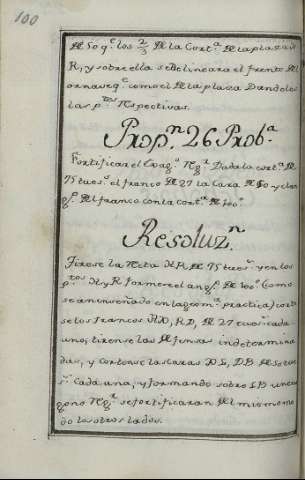 100
de 50 q.e los 2/3 de la Cort.a de la plaza
R, y sobre ella se Delineara el frente del
ornaveq.e como el de la plaza Dandoles
las p.tes Respectivas.
Prop.n 26 Prob.a
Fortificar el Exag.o Reg.r Dada la cort.a de
75 tues.s el franco de 27 la Cara de 50 y el an
g.o del franco con la cort.a de 100.o
Resoluz.n
Tirese la Recta de 75 tues.s y en los
p.tos H y R formese el ang.o de 100.o (Como
se a enseñado en la geom.a practica) corte
se los francos HD, RD, de 27 tues.s cada
uno, tirense las defensas indetermina
das, y cortense las caras de 50 tue
s.s Cada una, y formando sobre un exa
gono Reg.r se fortificaran del mismo mo
do los otros lados.